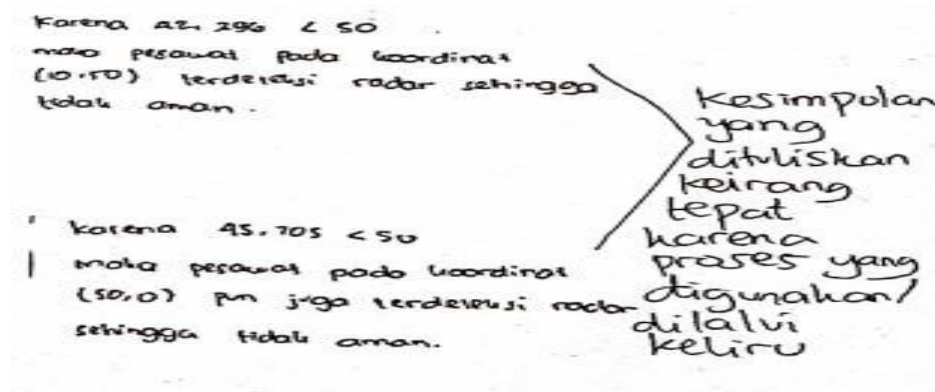 Karena 42,296 < 50
maka pesawat pada koordinat
(10,50) terdeteksi radar sehingga
tidak aman.
Karena 45,705 < 50
maka pesawat pada koordinat
(50,0) pun juga terdeteksi radar
sehingga tidak aman.
Kesimpulan
yang
dituliskan
keirang
tepat
karena
proses yang
digunakan/
dilalui
keliru